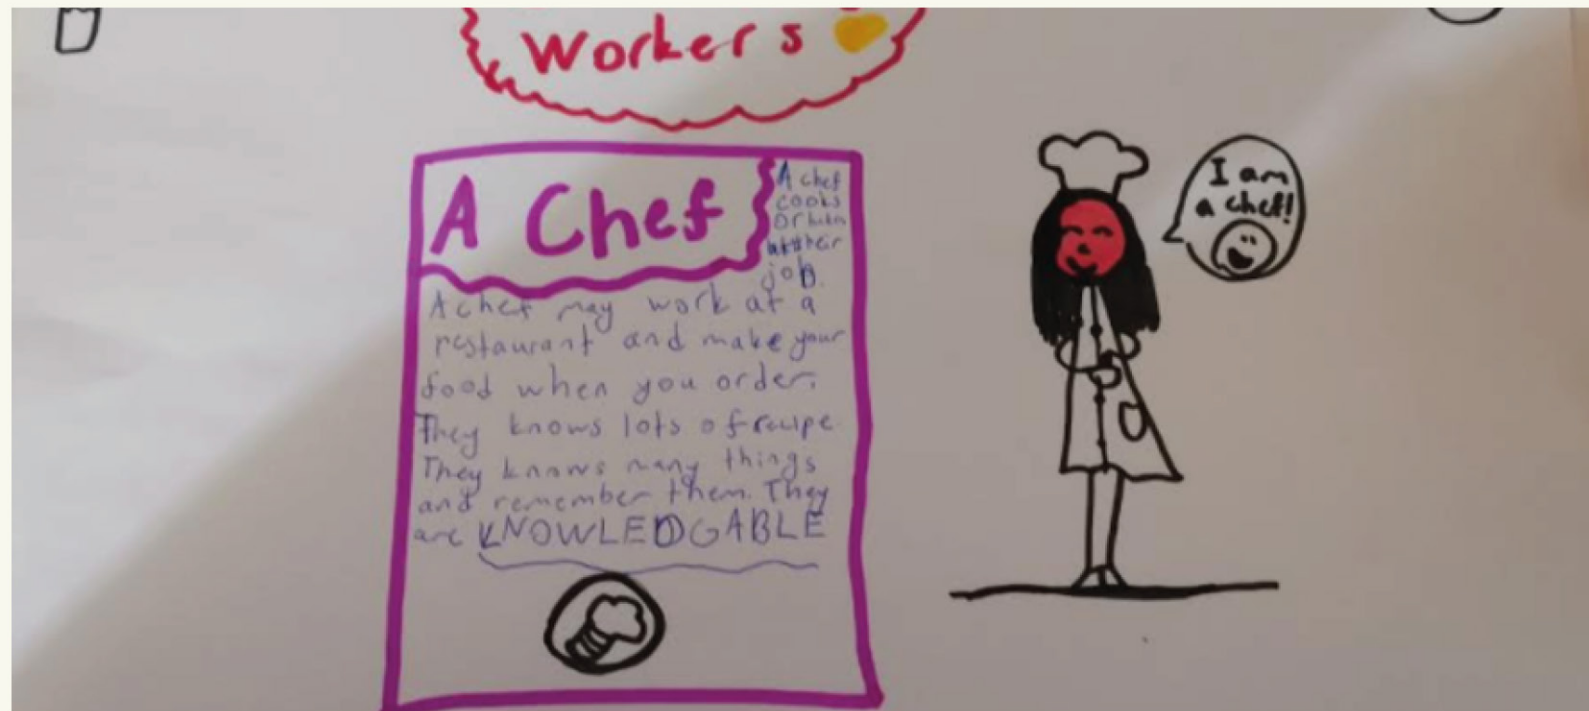 Workers
A Chef
A chef
cooks
or
their
job.
A chef may work at a
restaurant and make your
food when you order.
They knows lots of recipe
They knows many things
and remember them. They
are KNOWLEDGABLE
I am
a chef!